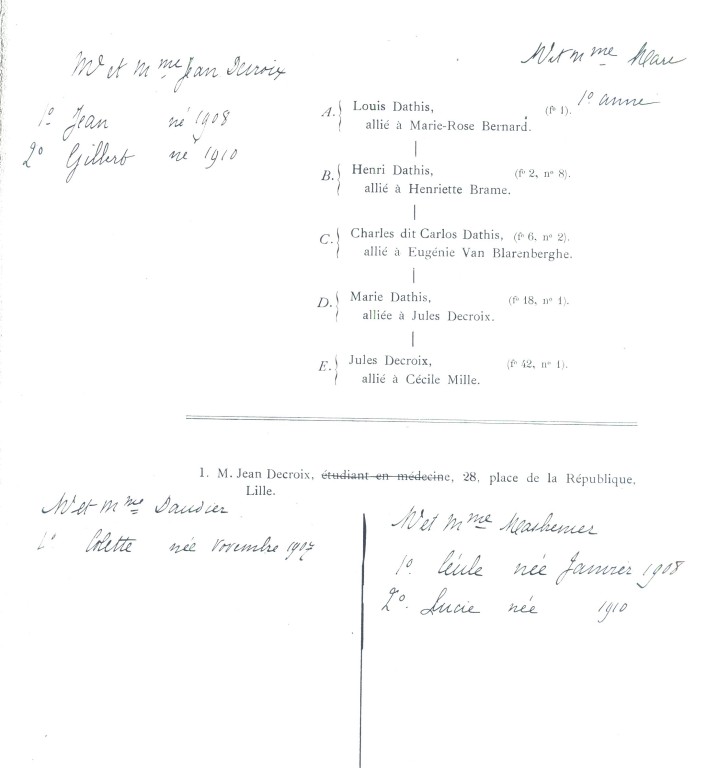 Mr et Mme Jean Decroix
1º Jean né 1908
2º Gilbert né 1910
Mr et Mme
1º année
A. } Louis Dathis, (fº 1).
allié à Marie-Rose Bernard.
B. } Henri Dathis, (fº 2, nº 8).
allié à Henriette Brame.
C. } Charles dit Carlos Dathis, (fº 6, nº 2).
allié à Eugénie Van Blarenberghe.
D. } Marie Dathis, (fº 18, nº 1).
alliée à Jules Decroix.
E. } Jules Decroix, (fº 42, nº 1).
allié à Cécile Mille.
1. M. Jean Decroix, étudiant en médecine, 28, place de la République,
Lille.
Mr et Mme Daudier
1º Colette née Novembre 1907
Mr et Mme
1º. Cécile née Janvier 1908
2º. Lucie née 1910